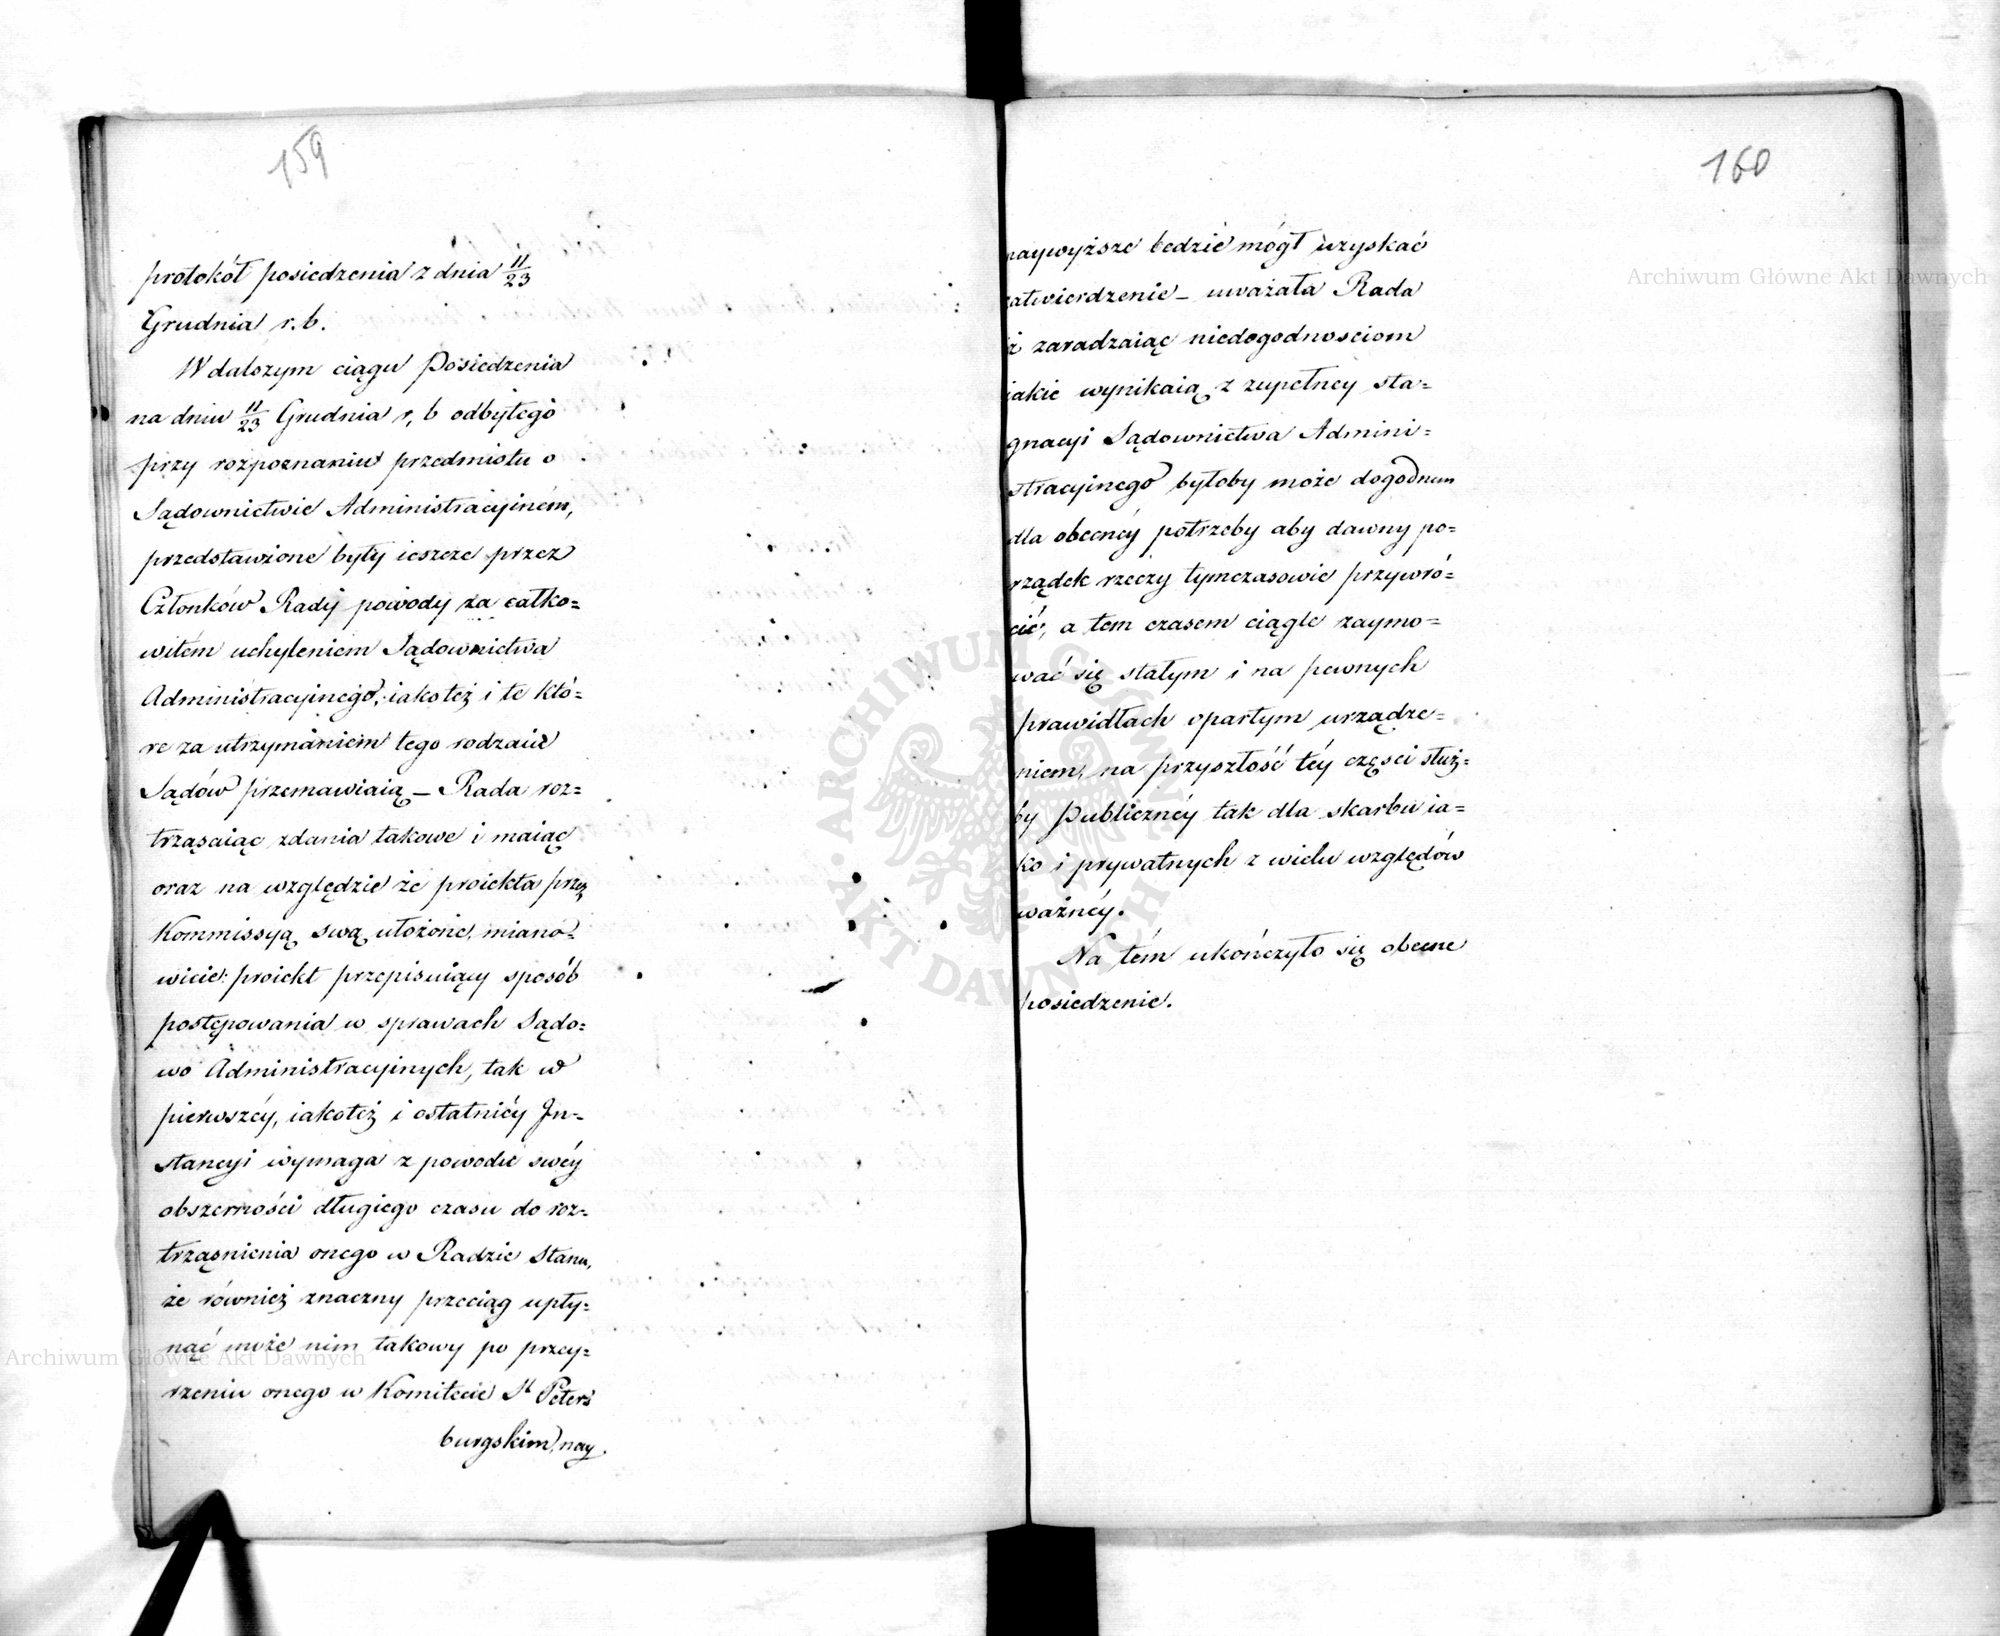 159
protokół posiedzenia z dnia 11/23
Grudnia r. b.
W dalszym ciągu Posiedzenia
na dniu 11/23 Grudnia r, b odbytego
przy rozpoznaniu przedmiotu o
Sądownictwie Administracyiném,
przedstawione były ieszcze przez
Członków Rady powody za całko=
witém uchyleniem Sądownictwa
Administracyinego, iakoteż i te któ=
re za utrzymaniem tego rodzaiu
Sądów przemawiaią – Rada roz=
trząsaiąc zdania takowe i maiąc
oraz na względzie że proiekta przez
Kommissyą swą ułożone, miano=
wicie: proiekt przepisuiący sposób
postępowania w sprawach Sądo=
wo Administracyinych, tak w
pierwszéy, iakoteż i ostatniéy In=
stancyi wymaga z powodu swéy
obszerności długiego czasu do roz=
trząśnienia onego w Radzie Stanu,
że również znaczny przeciąg upły=
nąć może nim takowy po przey=
rzeniu onego w Komitecie St Peters
burgskim, nay.
160
naywyższe bedzie mógł uzyskać
zatwierdzenie – uważała Rada
iż zaradzaiąc niedogodnosciom
iakie wynikaią z zupełney sta=
gnacyi Sądownictwa Admini=
stracyinego byłoby może dogodnem
dla obecnéy potrzeby aby dawny po=
rządek rzeczy tymczasowie przywró=
cić, a tem czasem ciągle zaymo=
wać się stałym i na pewnych
prawidłach opartym urządze=
niem, na przyszłość téy częsci służ=
by Publicznéy tak dla skarbu ia=
ko i prywatnych z wielu względów
ważnéy.
Na tém ukończyło się obecne
posiedzenie.
Archiwum Główne Akt Dawnych
Archiwum Główne Akt Dawnych
ARCHIWUM GŁÓWNE AKT DAWNYCH